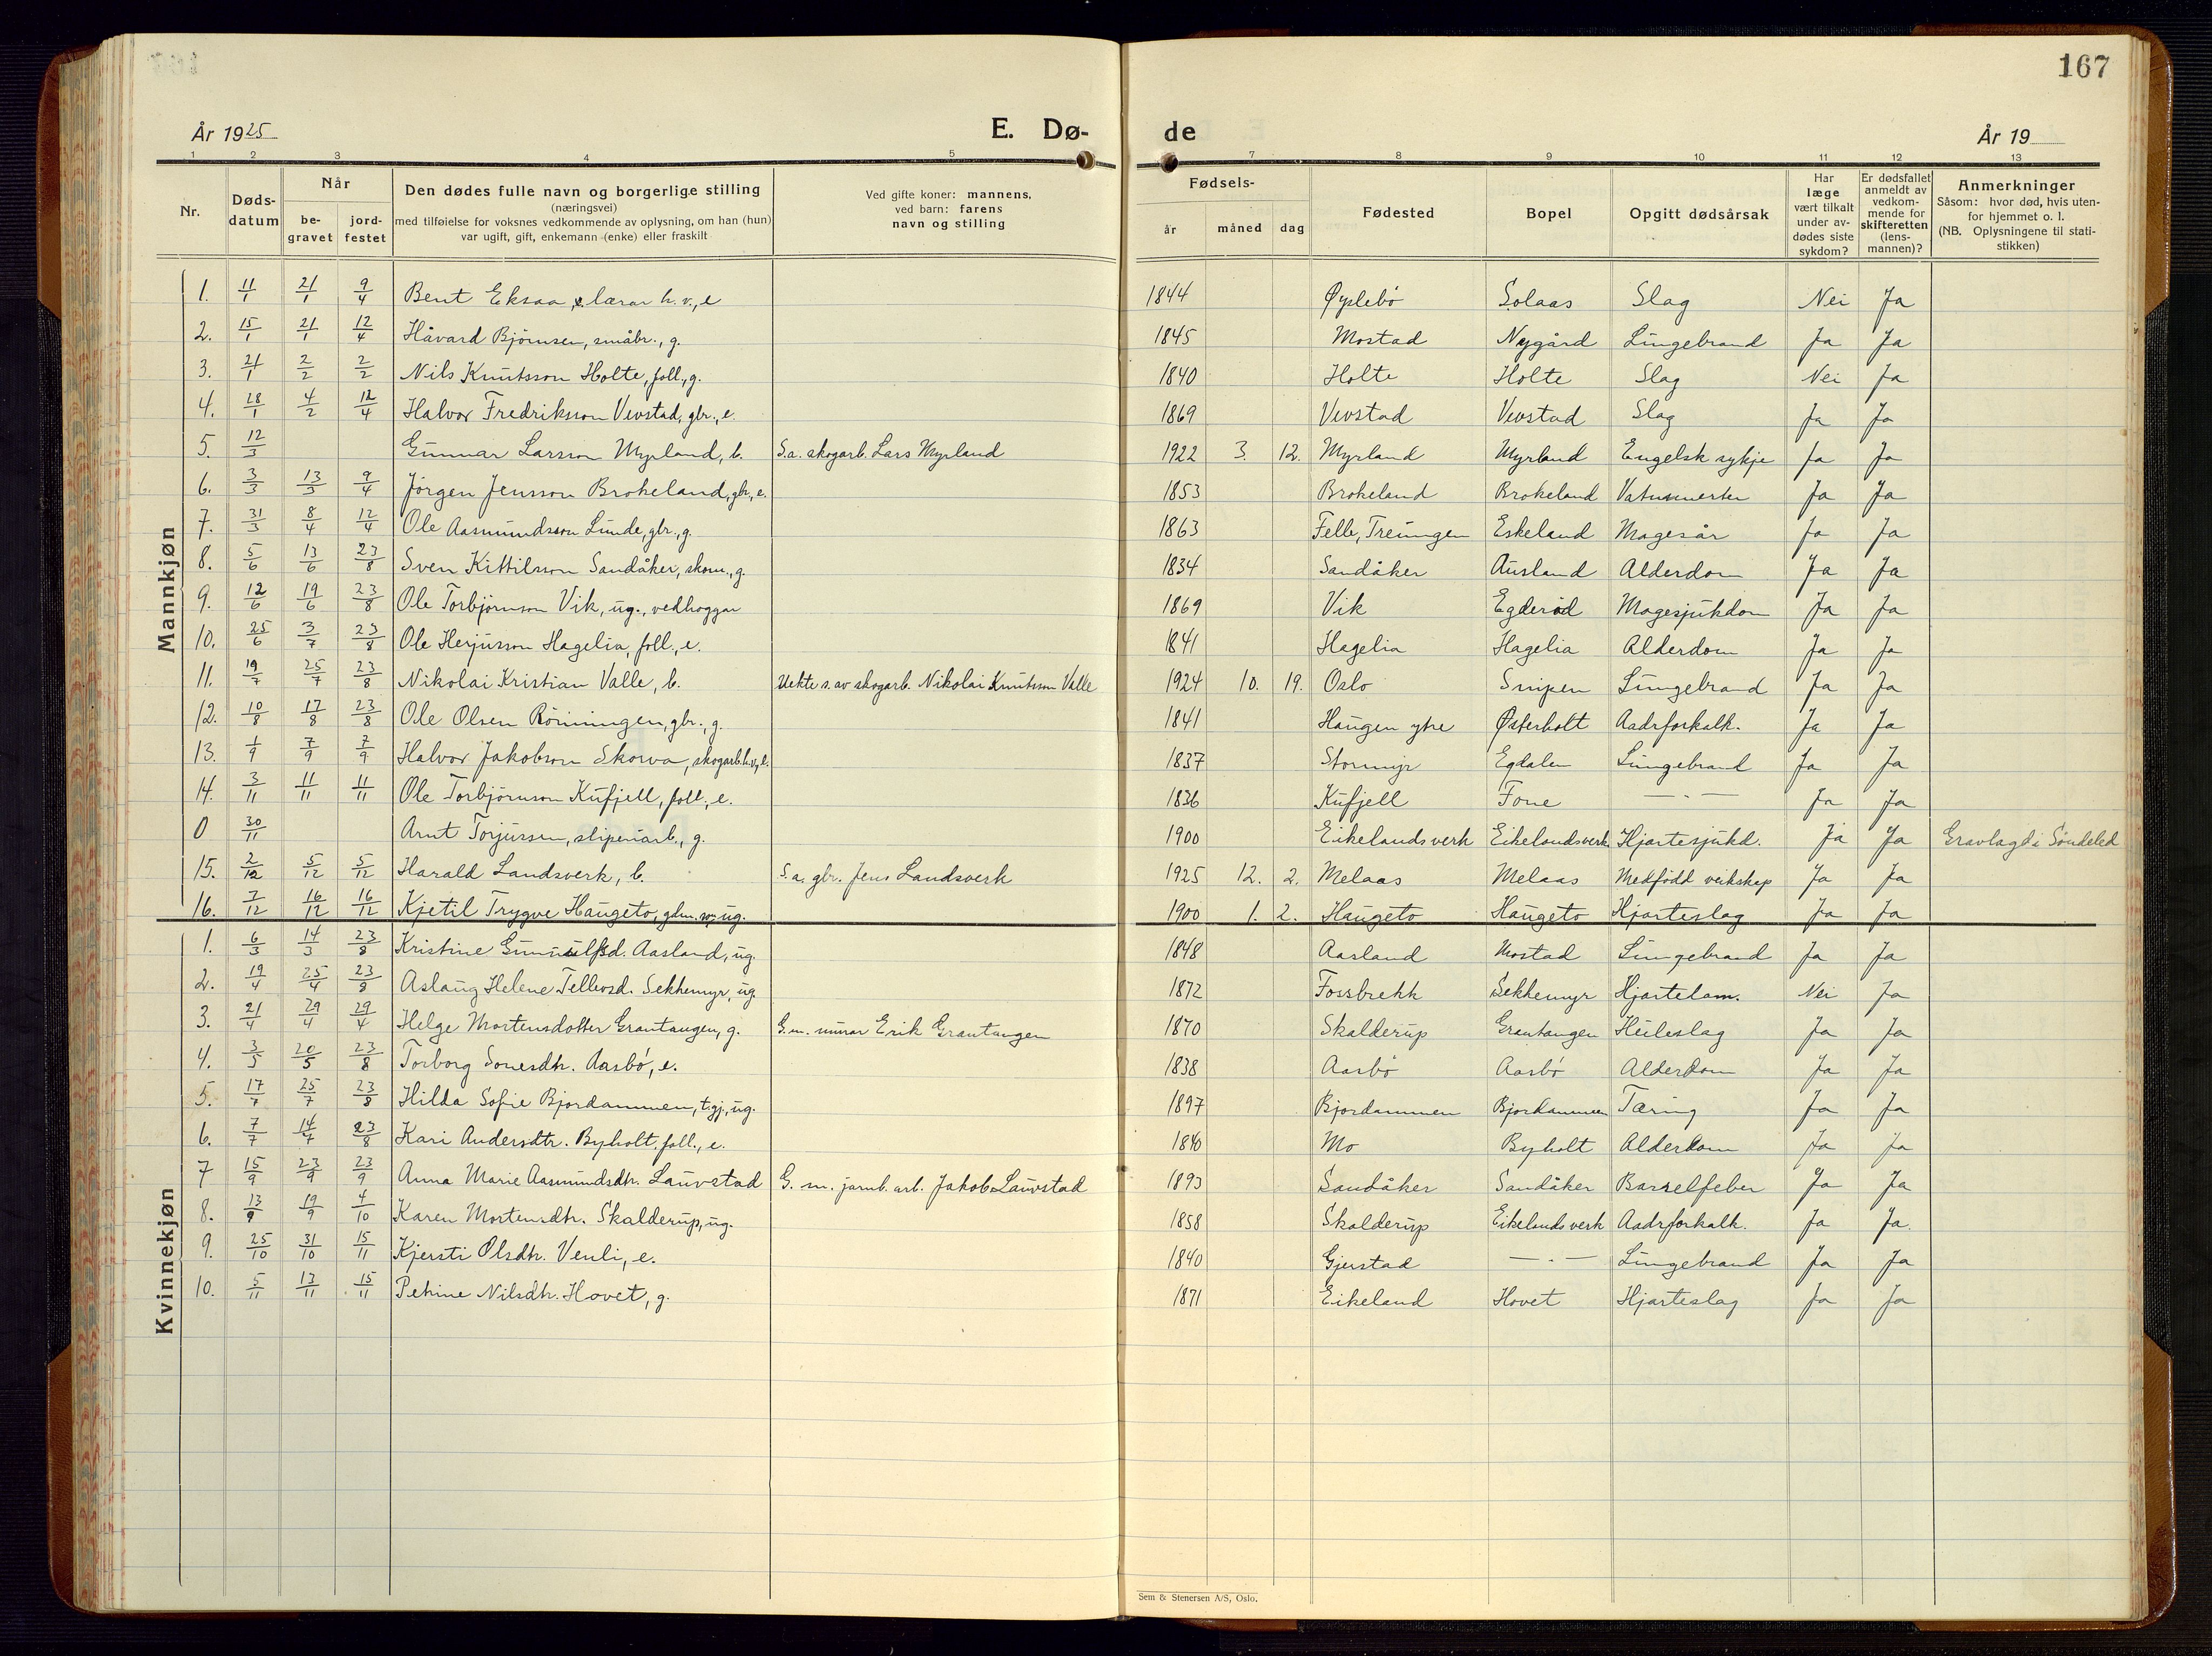 167
År 1925 E. Dø- de År 19
1 2 3 4 5 7 8 9 10 11 12 13
Nr. Døds-datum Når be-gravet jord-festet Den dødes fulle navn og borgerlige stilling (næringsvei) med tilføielse for voksnes vedkommende av oplysning, om han (hun) var ugift, gift, enkemann (enke) eller fraskilt Ved gifte koner: mannens, ved barn: farens navn og stilling Fødsels- år måned dag Fødested Bopel Opgitt dødsårsak Har læge vært tilkalt under av-dødes siste sykdom? Er dødsfallet anmeldt av vedkom-mende for skifteretten (lens-mannen)? Anmerkninger Såsom: hvor død, hvis uten-for hjemmet o. l. (NB. Oplysningene til stati-stikken)
Mannkjøn
1. 11/1 21/1 9/4 Bent Eksaa, lærar h.v., e 1844 Øyslebø Solaas Slag Nei Ja
2. 15/1 21/1 12/4 Håvard Bjørnsen, småbr., g. 1845 Mostad Nygård Lungebrand Ja Ja
3. 21/1 2/2 2/2 Nils Knutsson Holte, foll., g. 1840 Holte Holte Slag Nei Ja
4. 28/1 4/2 12/4 Halvor Fredriksson Vevstad, gbr., e. 1869 Vevstad Vevstad Slag Ja Ja
5. 12/3 Gunnar Larsson Myrland, b. S.a. skogarb. Lars Myrland 1922 3. 12. Myrland Myrland Engelsk sykje Ja Ja
6. 3/3 13/3 9/4 Jörgen Jensson Brokeland, gbr., e. 1853 Brokeland Brokeland Ja Ja
7. 31/3 8/4 12/4 Ole Aasmundsson Lunde, gbr., g. 1863 Felle, Treungen Eskeland Magesår Ja Ja
8. 5/6 13/6 23/8 Sven Kittilsson Sandåker, skom., g. 1834 Sandåker Ausland Alderdom Ja Ja
9. 12/6 19/6 23/8 Ole Torbjörnson Vik, ug., vedhoggar 1869 Vik Egderöd Magesjukdom Ja Ja
10. 25/6 3/7 23/8 Ole Herjusson Hagelia, foll., e. 1841 Hagelia Hagelia Alderdom Ja Ja
11. 19/7 25/7 23/8 Nikolai Kristian Valle, b. Uekte s. av skogarb. Nikolai Knutsson Valle 1924 10. 19. Oslo Snipen Lungebrand Ja Ja
12. 10/8 17/8 23/8 Ole Olsen Rönningen, gbr., g. 1841 Haugen ytre Østerholt Aadrforkalk. Ja Ja
13. 1/9 7/9 7/9 Halvor Jakobson Skorva, skogarb. h.v., e. 1837 Stormyr Egdalen Lungebrand Ja Ja
14. 3/11 11/11 11/11 Ole Torbjörnson Kufjell, foll., e. 1836 Kufjell Fone — „ — Ja Ja
0 30/11 Arnt Torjussen, sliperiarb., g. 1900 Eikelandsverk Eikelandsverk Hjartesjukd. Ja Ja Gravlagd i Söndeled
15. 2/12 5/12 5/12 Harald Landsverk, b. S.a. gbr. Jens Landsverk 1925 12. 2. Melaas Melaas Medfödd veikskap Ja Ja
16. 7/12 16/12 16/12 Kjetil Trygve Haugeto, gdm. s., ug. 1900 1. 2. Haugeto Haugeto Hjarteslag Ja Ja
Kvinnekjøn
1. 6/3 14/3 23/8 Kristine Gunnulfsd. Aasland, ug. 1848 Aasland Mostad Lungebrand Ja Ja
2. 19/4 25/4 23/8 Aslaug Helene Tellevsd. Sekkemyr, ug. 1872 Fossbrekk Sekkemyr Hjartelam. Nei Ja
3. 21/4 29/4 29/4 Helge Mortensdotter Grautangen, g. G.m. murar Erik Grautangen 1870 Skalderup Grautangen Heileslag Ja Ja
4. 3/5 20/5 23/8 Torborg Tonesdtr. Aasbö, e. 1838 Aasbö Aasbö Alderdom Ja Ja
5. 17/7 25/7 23/8 Hilda Sofie Bjordammen, t.gj., ug. 1897 Bjordammen Bjordammen Tæring Ja Ja
6. 7/7 14/7 23/8 Kari Andersdtr. Byholt, foll., e. 1840 Mo Byholt Alderdom Ja Ja
7 15/9 23/9 23/9 Anna Marie Aasmundsdtr. Lauvstad G. m. jarnb. arb. Jakob Lauvstad 1893 Sandåker Sandåker Barselfeber Ja Ja
8. 13/9 19/9 4/10 Karen Mortensdtr. Skalderup, ug. 1858 Skalderup Eikelandsverk Aadrforkalk. Ja Ja.
9. 25/10 31/10 15/11 Kjersti Olsdtr. Venli, e. 1840 Gjerstad — „ — Lungebrand Ja Ja
10. 5/11 13/11 15/11 Petrine Nilsdtr. Hovet, g. 1871 Eikeland Hovet Hjarteslag Ja Ja
Sem & Stenersen A/S, Oslo.